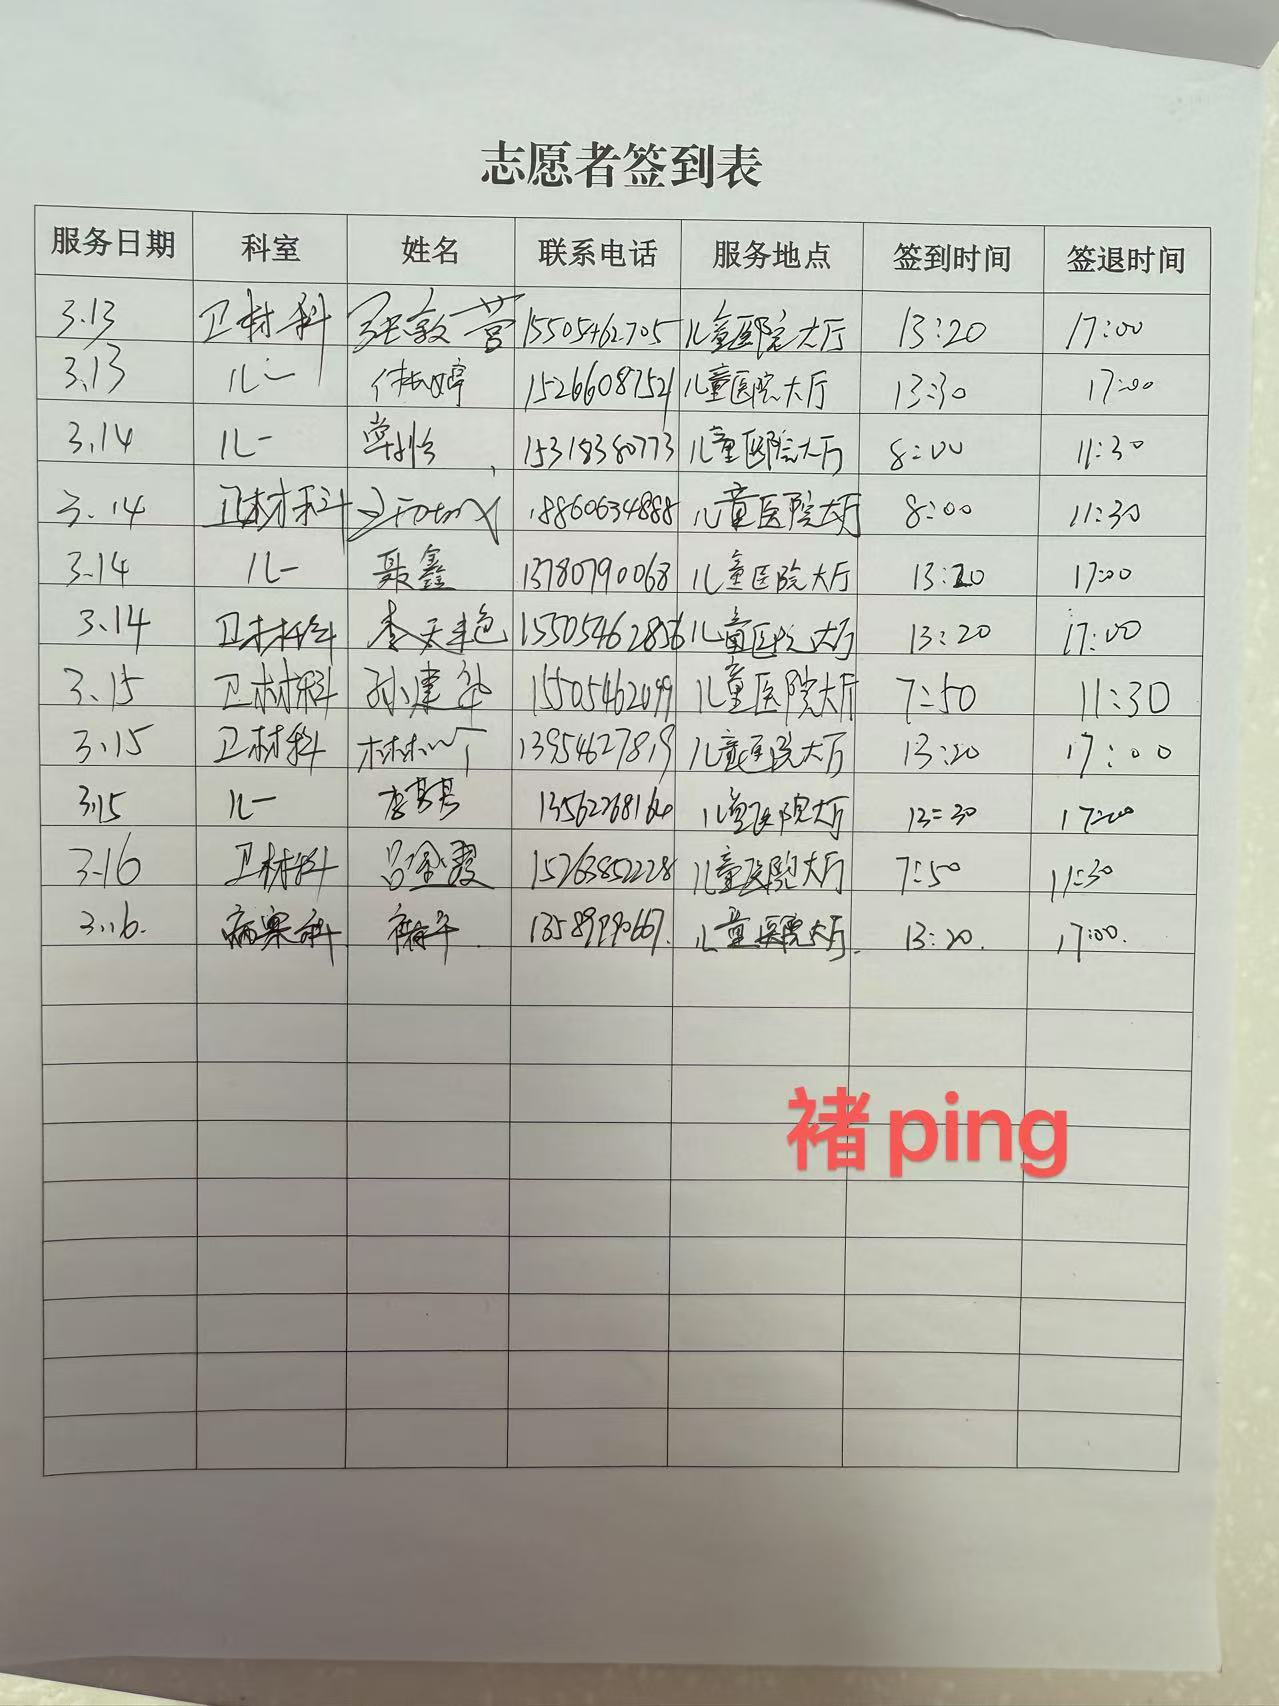 志愿者签到表
服务日期 科室 姓名 联系电话 服务地点 签到时间 签退时间
3.13 卫材科 张敦营 15505462705 儿童医院大厅 13:20 17:00
3.13 儿一 15266087521 儿童医院大厅 13:30 17:00
3.14 儿一 15318380773 儿童医院大厅 8:00 11:30
3.14 卫材科 18860634888 儿童医院大厅 8:00 11:30
3.14 儿一 聂鑫 13780790068 儿童医院大厅 13:20 17:00
3.14 卫材科 李天艳 15505462856 儿童医院大厅 13:20 17:00
3.15 卫材科 孙建华 15505462099 儿童医院大厅 7:50 11:30
3.15 卫材科 13954627819 儿童医院大厅 13:20 17:00
3.15 儿一 13562268164 儿童医院大厅 13:30 17:00
3.16 卫材科 吕金霞 15263852228 儿童医院大厅 7:50 11:30
3.16. 病案科 13589990667. 儿童医院大厅. 13:20. 17:00.
褚ping